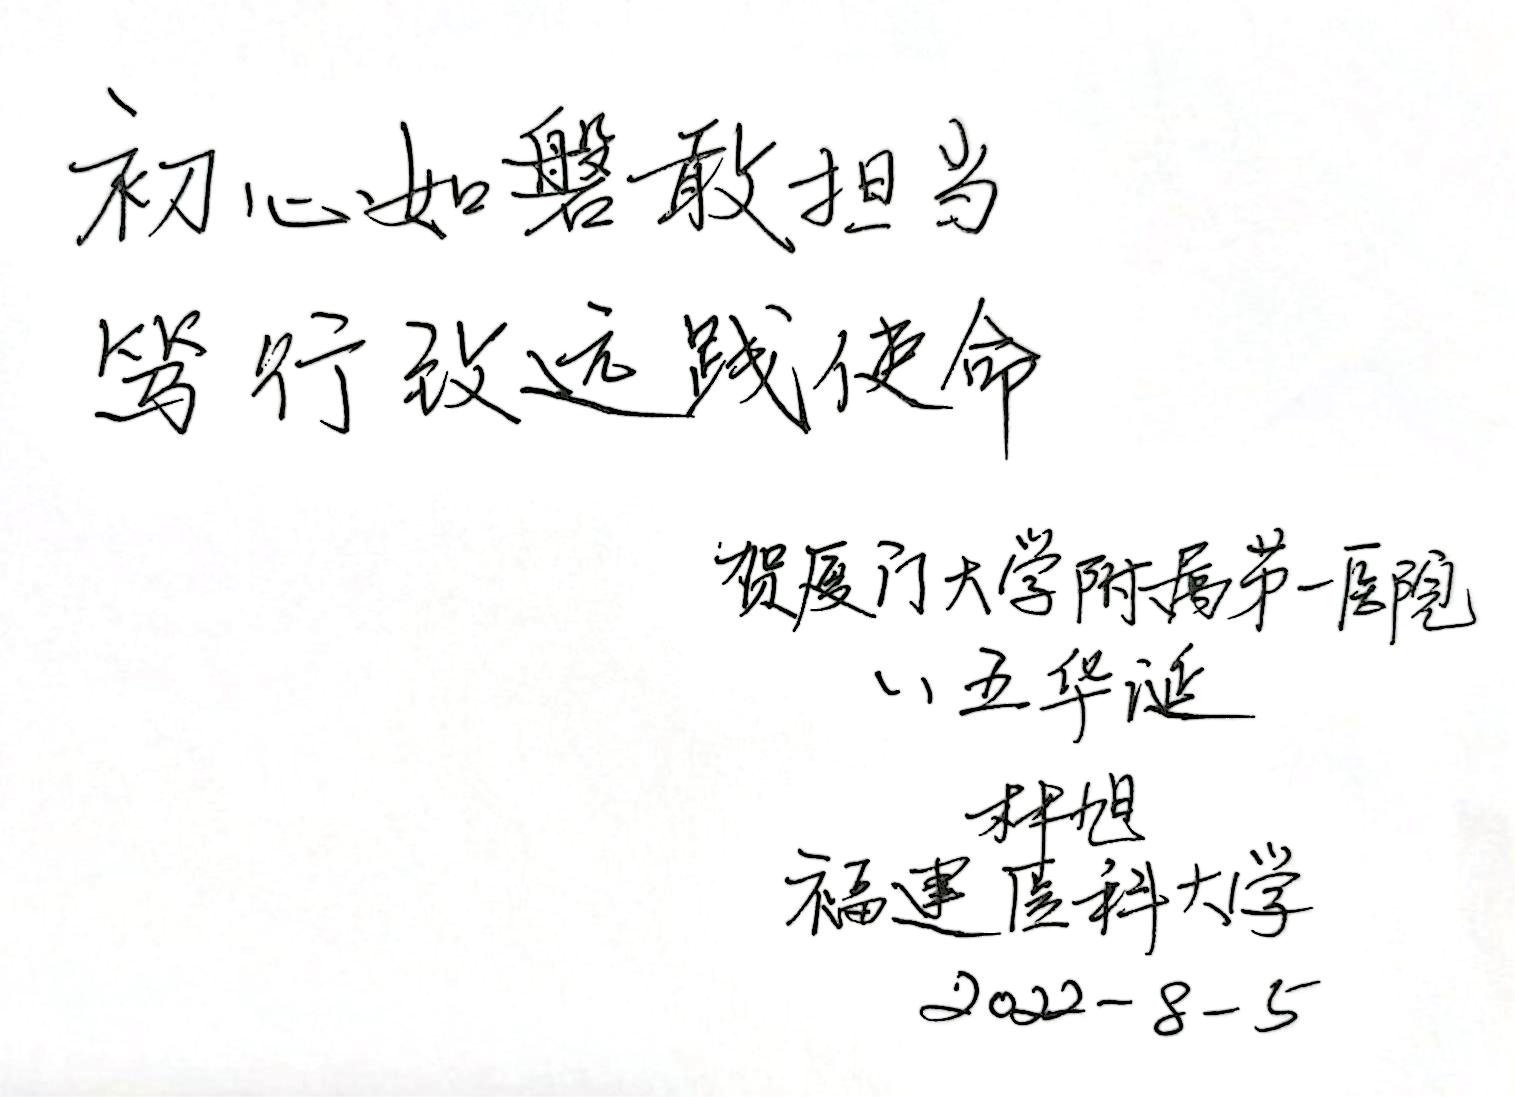 初心如磐敢担当
笃行致远践使命
贺厦门大学附属第一医院
八五华诞
林旭
福建医科大学
2022-8-5